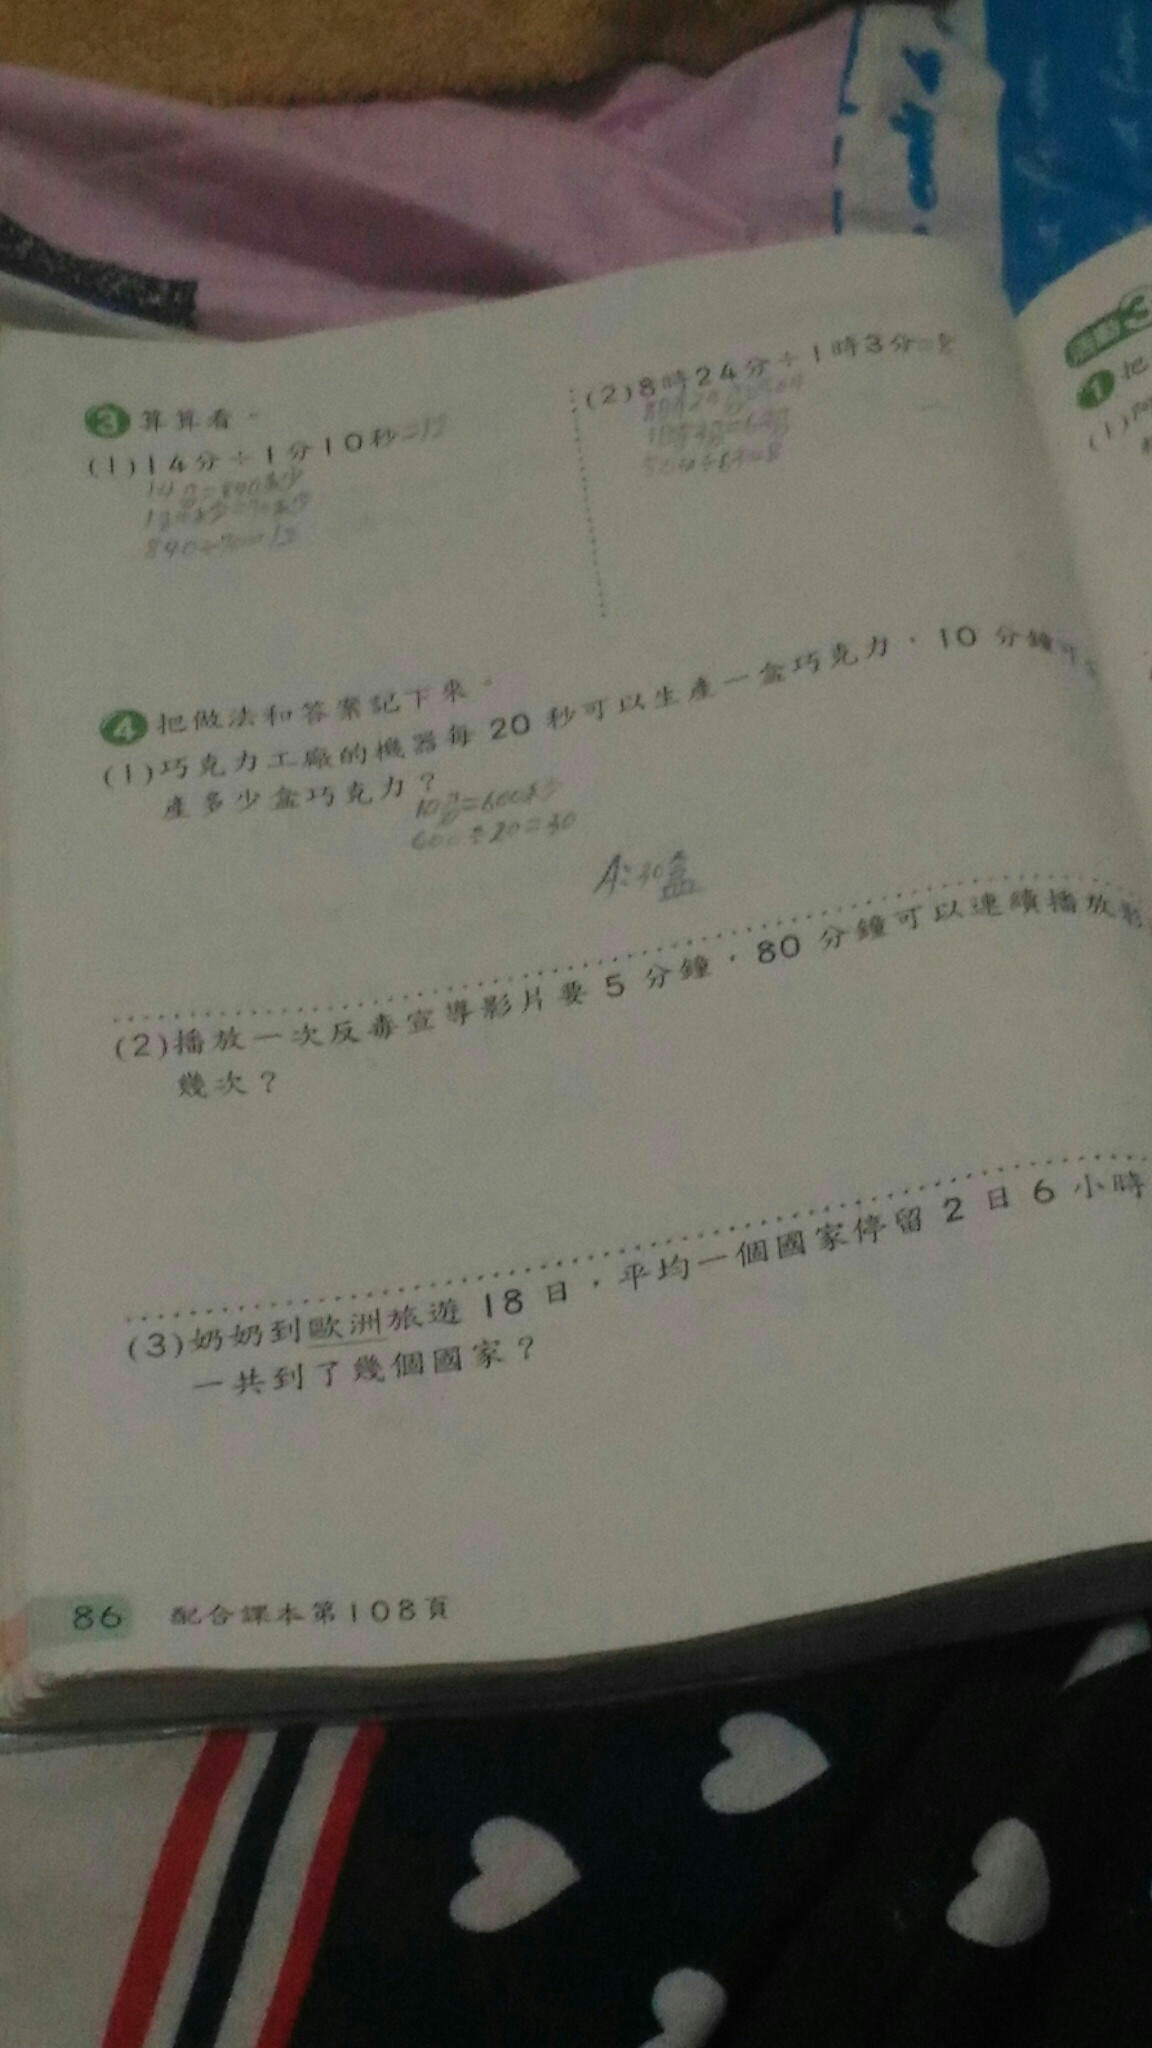 3 算算看。
(1)14分÷1分10秒=12
14分=840秒
1分10秒=70秒
840÷70=12
(2)8時24分÷1時3分=8
504÷63=8
4 把做法和答案記下來。
(1)巧克力工廠的機器每 20 秒可以生產一盒巧克力,10 分鐘可
產多少盒巧克力?
10分=600秒
600÷20=30
A:30盒
(2)播放一次反毒宣導影片要 5 分鐘,80 分鐘可以連續播放
幾次?
(3)奶奶到歐洲旅遊 18 日,平均一個國家停留 2 日 6 小時
一共到了幾個國家?
86 配合課本第108頁
活動3
1 把
(1)